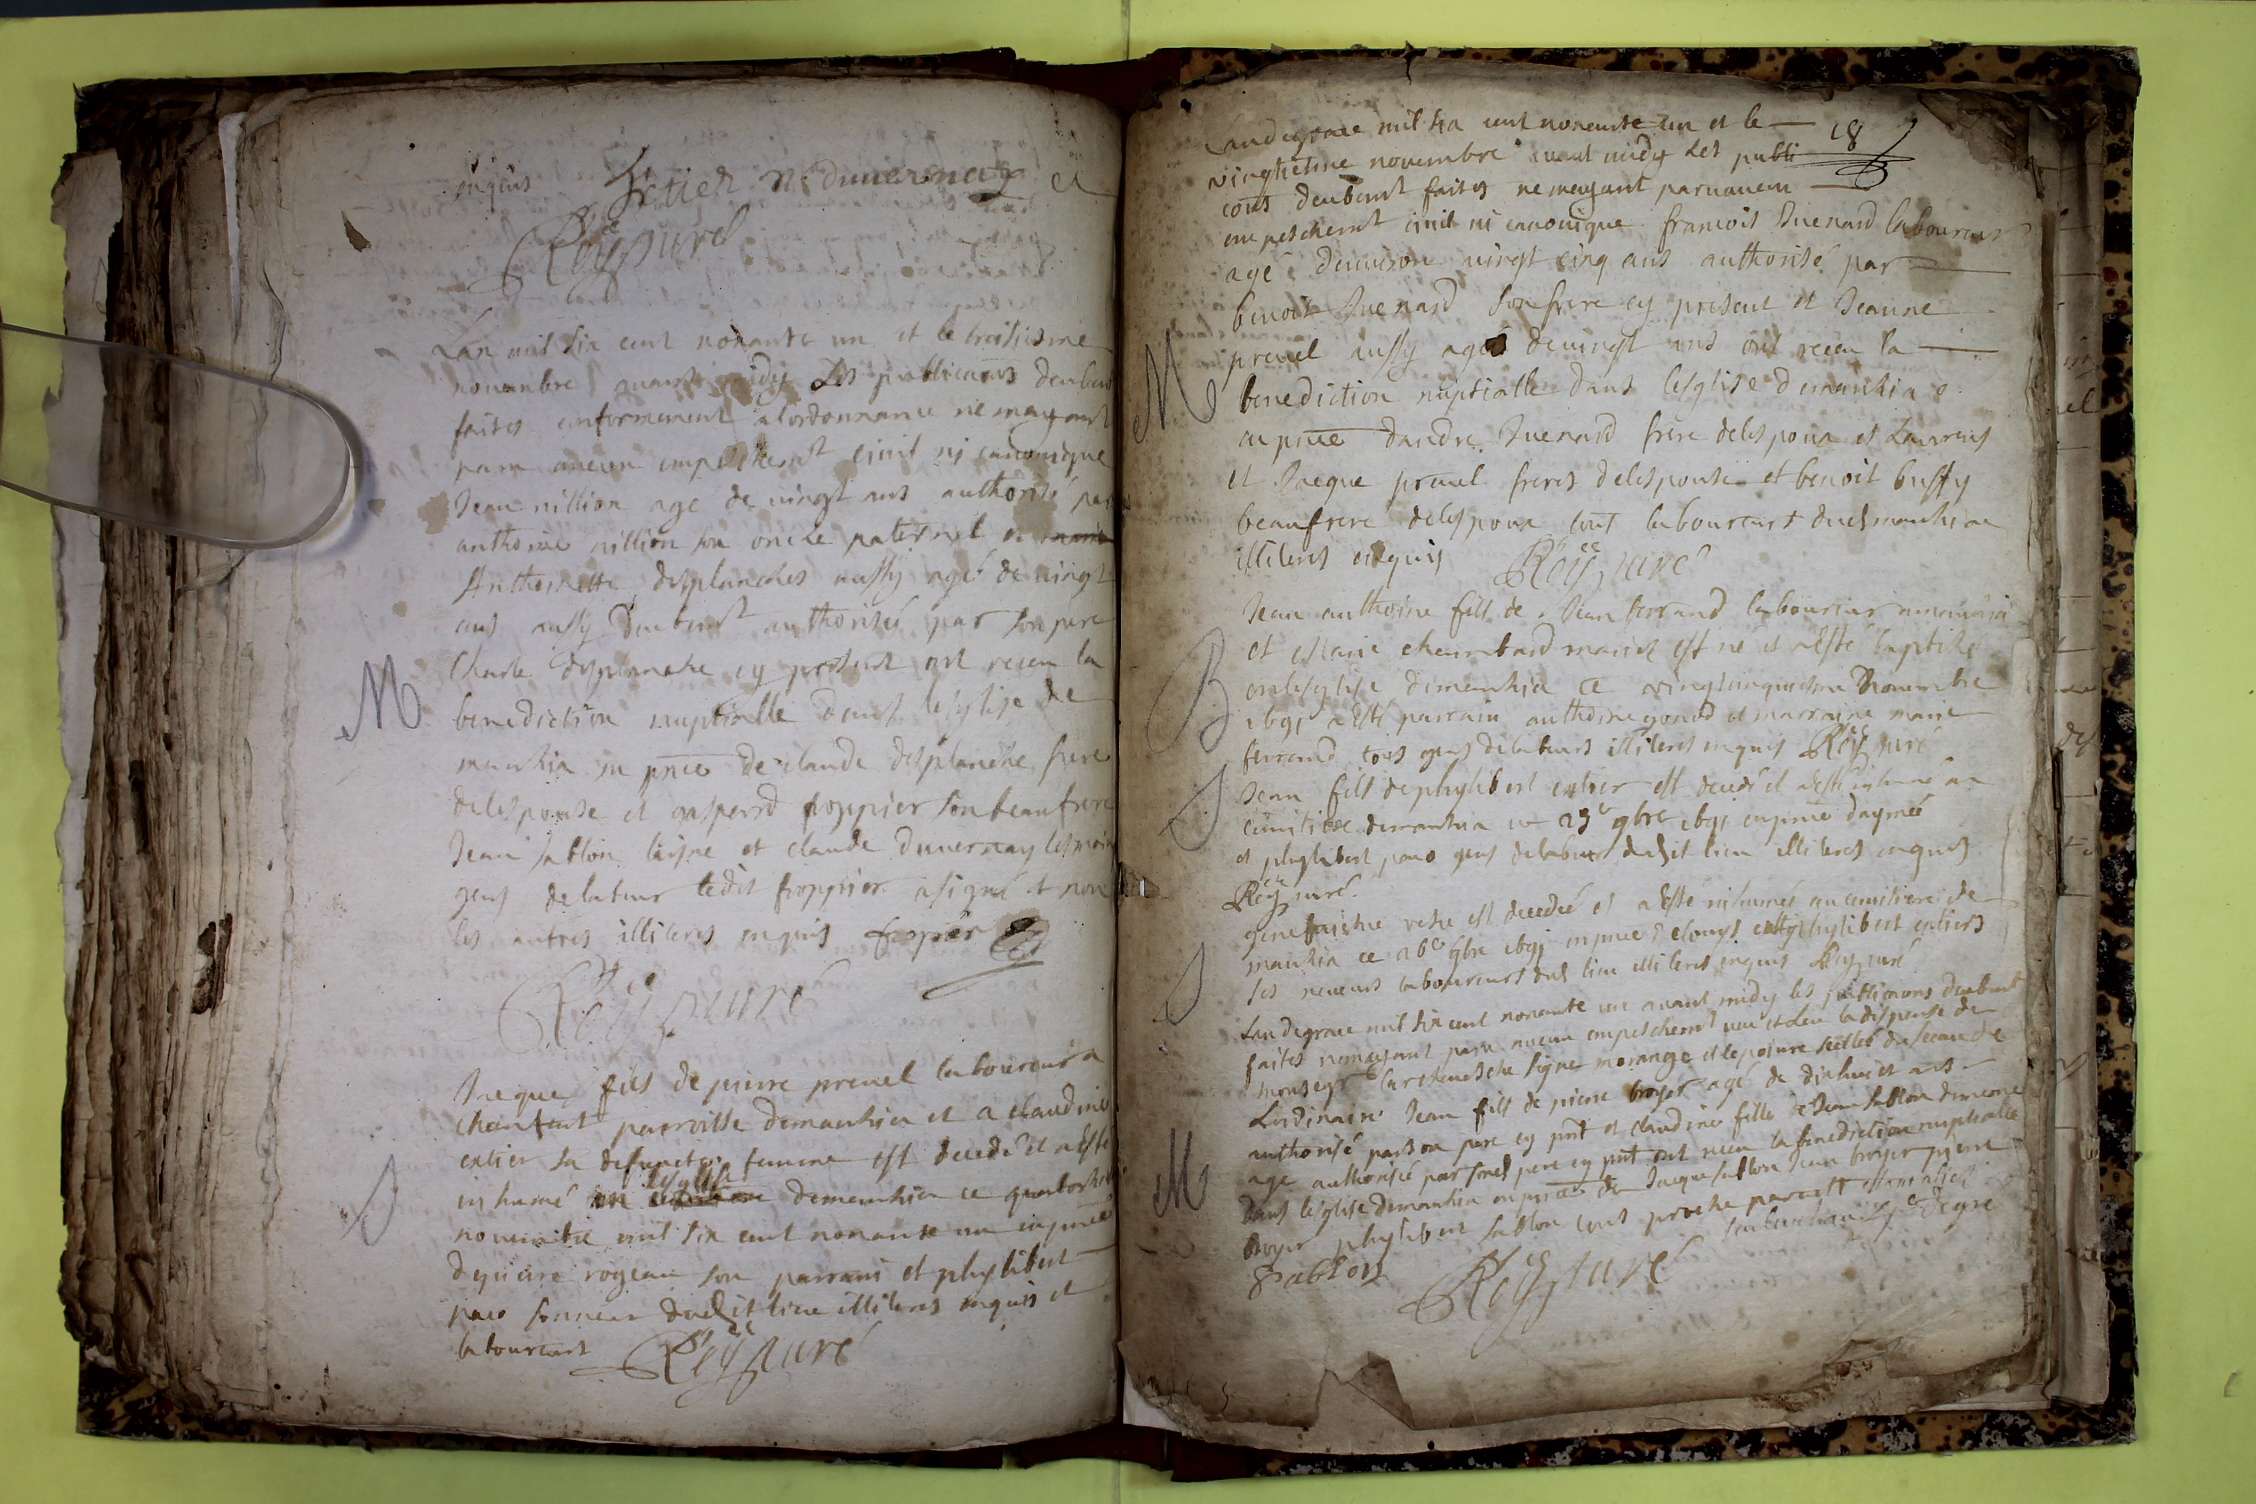 enquis n. duuernay et
Rey curé
Lan mil six cent nonante un et le troisiesme
nouembre auant midy Les publicaõns deubem̃t
faites conformement a lordonnance ne mayant
paru aucun empeschem̃t ciuil ni canonique
Jean nillion age de vingt ans authorisé par
anthoine nillion son oncle paternel et
Anthoinette desplanches aussy agé de vingt
ans aussy deubem̃t authorisée par son pere
Charle desplanche cy present ont receu la
M
benediction nuptialle dans lesglise de
manhia en pñce de claude desplanche frere
delespouse et gasperd froppier son beaufrere
Jean sablon laisne et claude duuernay
gens de labeur ledit froppier a signé et non
les autres illiteres enquis fropier
Rey curé
Jacque fils de pierre preuel laboureur a
chanfant parroisse demanhia et a claudine
extier sa defuncte femme est decedé et a esté
S
inhumé en lesglise demanhia ce quatorzie
nouembre mil six cent nonante un en pñce
depierre rogeau son parrain et phylibert
paco sonneur dudit lieu illiteres enquis et
laboureurs Rey curé
18
Landegrace mil six cent nonente un et le
vingtietme novembre auant midy Les publi
coñs deubem̃t faites ne mayant paruaucun
empeschem̃t ciuil ni canonique francois Juenard laboureur
agé denuiron vingt cinq ans authorisé par
benoit Juenard son frere cy present et Jeanne
M
preuel aussy agée devingt ans ont receu la
benediction nuptialle dans lesglise demanhia
en pñce dandre Juenard frere delespoux et Laurens
et Jacque preuel freres delespouse et benoit bussy
beaufrere delespoux tous laboureurs dud manhia
illiteres enquis Rey curé
Jean anthoine fils de Jean ferrand laboureur amanhia
et chambard mariez est né et a esté baptisé
B
en lesglise demanhia ce vingtcinquiesme Nouembre
1691 a esté parrain anthoine et marraine marie
ferrand tous gens delabeurs illiteres enquis Rey curé
S
Jean fils dephylibert extier est decedé et a esté inhumé au
cimitiere demanhia ce 9bre 1691 en pñce daymé
et phylibert paco gens delabeur dudit lieu illiteres enquis
Rey curé
est decedé et a esté inhumé au cimitiere de
S
manhia ce 26e 9bre 1691 en pñce phylibert extiers
ses neueux laboureurs dud lieu illiteres enquis Rey curé
Landegrace mil six cent nonante un auant midy les publicaõns deubem̃t
faites nemayant paru aucun empeschem̃t veu et Leu la dispense de
monseigr Larcheuesche signe morange et sellée du sceau de
Lordinaire Jean fils de pierre broyer agé de dixhuict ans
authorisé par son pere cy pñt et claudine fille de Jean sablon
M
age authorisée par sond pere cy pñt ont receu la benediction nuptialle
dans lesglise demanhia en pñce de Jacque sablon Jean broyer pierre
broyer phylibert sablon tous proche
Sablon Rey curé